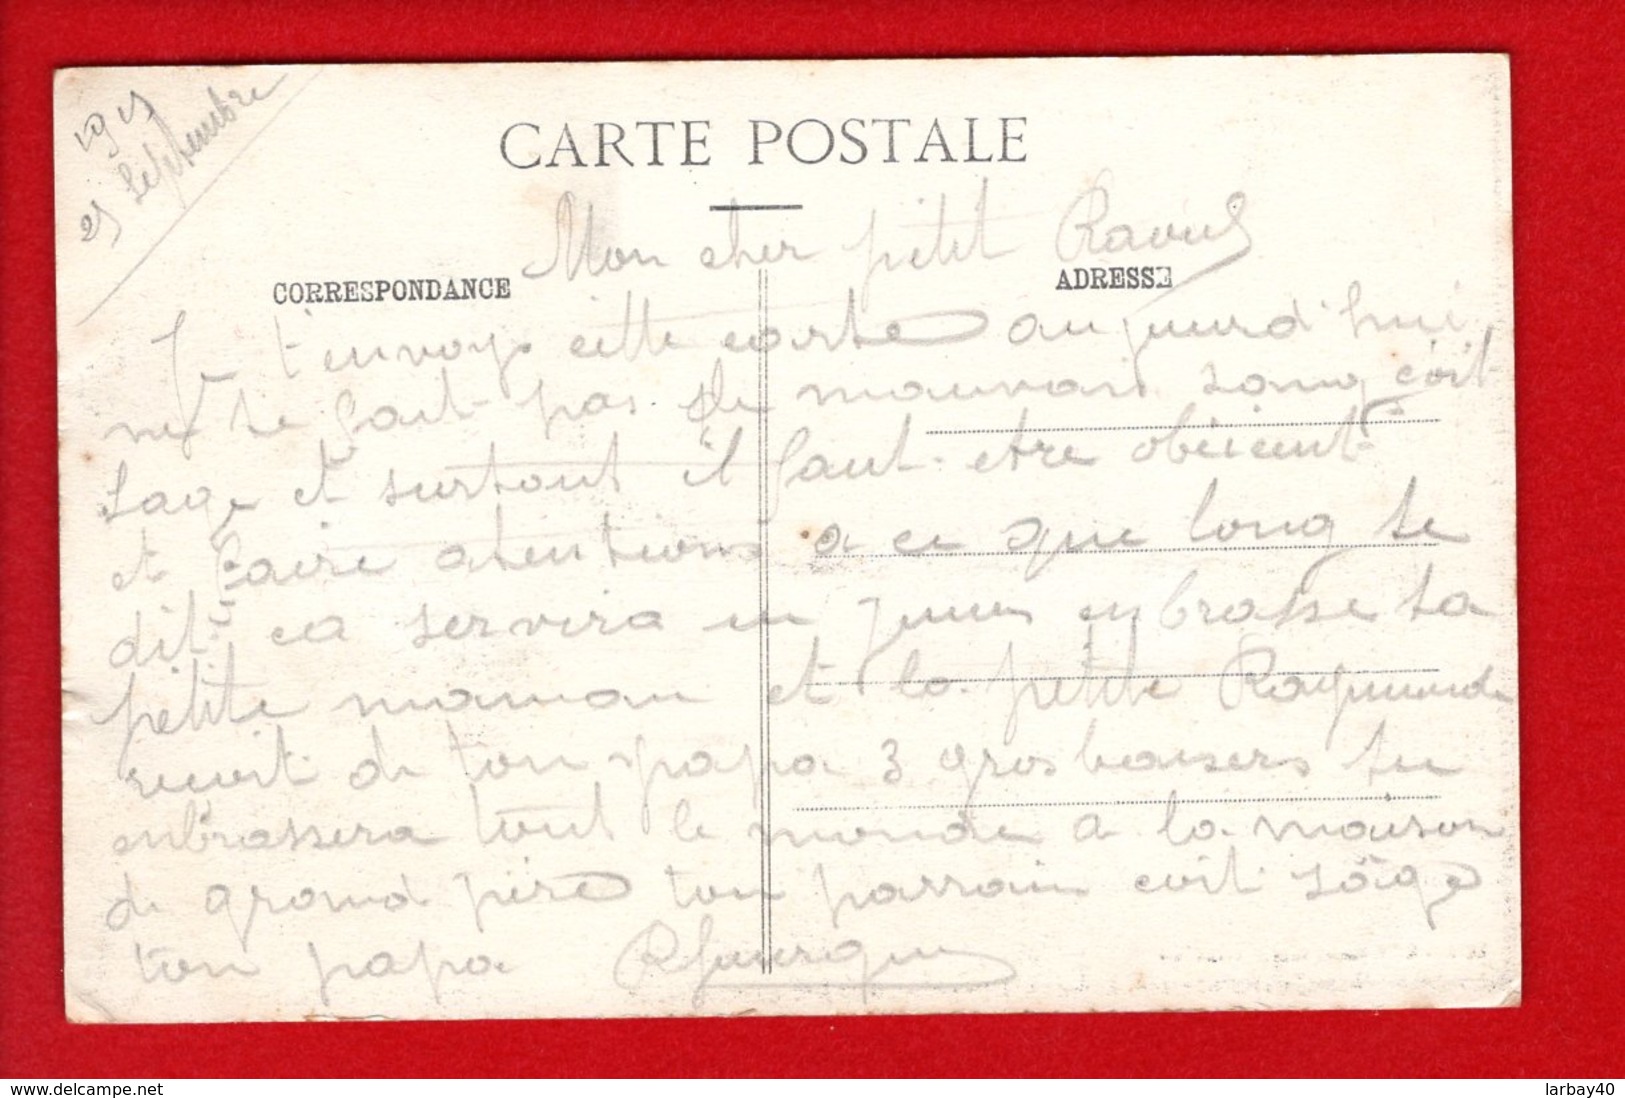 1915
25 Septembre
CARTE POSTALE
Mon cher petit Raoul
CORRESPONDANCE
ADRESSE
Je t'envoye cette carte aujourd'hui
ne te fait pas de mauvais sang soit
sage et surtout il faut etre obeicent
et faire atentions a ce que long te
dit ca servira un jour enbrasse ta
petite maman et la petite Raymonde
recoit de ton papa 3 gros baisers tu
enbrassera tout le monde a la maison
de grand père ton parrain soit sage
ton papa
www.delcampe.net
larbay40